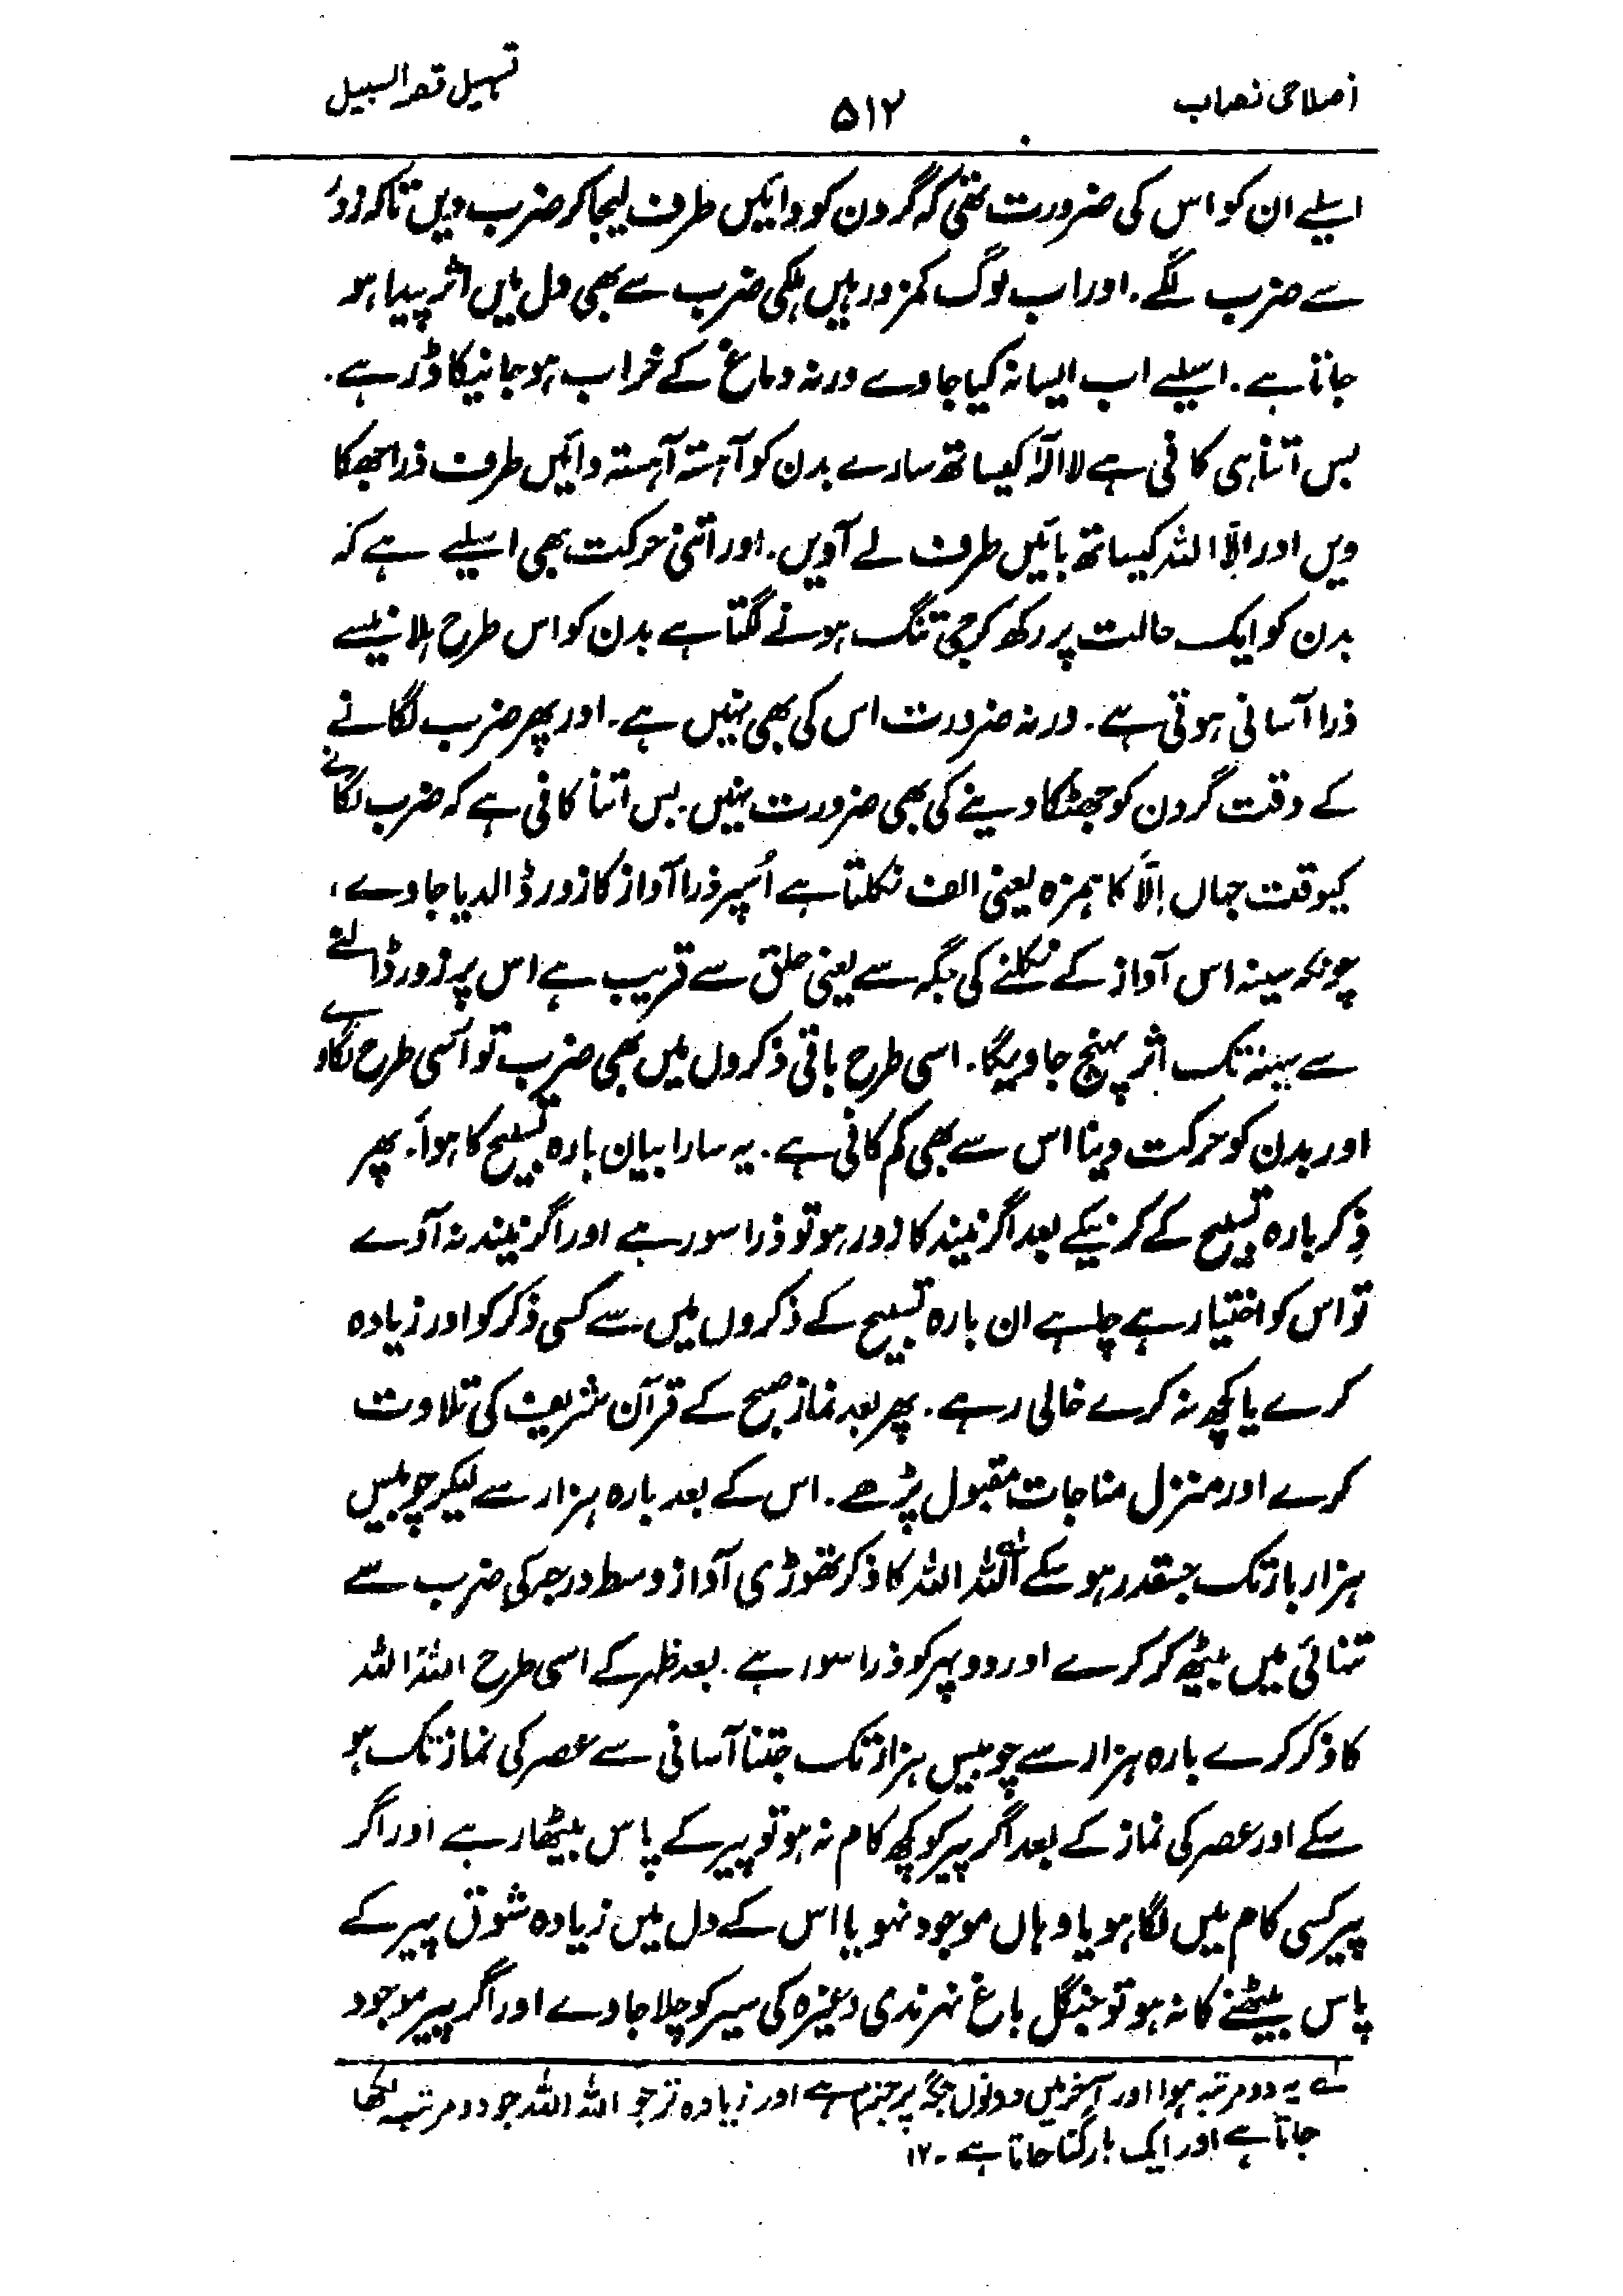 اصلاحی نصاب
۵۱۲
تسہیل قصد السبیل
اسلیے ان کو اس کی ضرورت تھی کہ گردن کو دائیں طرف لیجا کر ضرب دیں تاکہ زور
سے ضرب لگے۔ اور اب لوگ کمزور ہیں ہلکی ضرب سے بھی دل میں اثر پیدا ہو
جاتا ہے۔ اسلیے اب ایسا نہ کیا جاوے ورنہ دماغ کے خراب ہو جانیکا ڈر ہے۔
بس اتنا ہی کافی ہے لا الٰہ کیساتھ سارے بدن کو آہستہ آہستہ دائیں طرف ذرا جھکا
دیں اور الّا اللہ کیساتھ بائیں طرف لے آویں۔ اور اتنی حرکت بھی اسلیے ہے کہ
بدن کو ایک حالت پر رکھ کر جی تنگ ہونے لگتا ہے بدن کو اس طرح ہلانیسے
ذرا آسانی ہوتی ہے۔ ورنہ ضرورت اس کی بھی نہیں ہے۔ اور پھر ضرب لگانے
کے وقت گردن کو جھٹکا دینے کی بھی ضرورت نہیں۔ بس اتنا کافی ہے کہ ضرب لگانے
کیوقت جہاں اِلَّا کا ہمزہ یعنی الف نکلتا ہے اُسپر ذرا آواز کا زور ڈالدیا جاوے،
چونکہ سینہ اس آواز کے نکلنے کی جگہ سے یعنی حلق سے قریب ہے اس پر زور ڈالنے
سے سینہ تک اثر پہنچ جاویگا۔ اسی طرح باقی ذکروں میں بھی ضرب تو اسی طرح لگاوے
اور بدن کو حرکت دینا اس سے بھی کم کافی ہے۔ یہ سارا بیان بارہ تسبیح کا ہوا۔ پھر
ذِکر بارہ تسبیح کے کرنیکے بعد اگر نیند کا زور ہو تو ذرا سو رہے اور اگر نیند نہ آوے
تو اس کو اختیار ہے چاہے ان بارہ تسبیح کے ذکروں میں سے کسی ذکر کو اور زیادہ
کرے یا کچھ نہ کرے خالی رہے۔ پھر بعد نماز صبح کے قرآن شریف کی تلاوت
کرے اور منزل مناجات مقبول پڑھے۔ اس کے بعد بارہ ہزار سے لیکر چوبیس
ہزار بار تک جسقدر ہو سکے اللہ اللہ کا ذکر تھوڑی آواز وسط درجہ کی ضرب سے
تنہائی میں بیٹھ کر کرے اور دوپہر کو ذرا سو رہے۔ بعد ظہر کے اسی طرح اللہ اللہ
کا ذکر کرے بارہ ہزار سے چوبیس ہزار تک جتنا آسانی سے عصر کی نماز تک ہو
سکے اور عصر کی نماز کے بعد اگر پیر کو کچھ کام نہ ہو تو پیر کے پاس بیٹھا رہے اور اگر
پیر کسی کام میں لگا ہو یا وہاں موجود نہو یا اس کے دل میں زیادہ شوق پیر کے
پاس بیٹھنے کا نہ ہو تو جنگل باغ نہر ندی وغیرہ کی سیر کو چلا جاوے اور اگر پیر موجود
لے یہ دو مرتبہ ہوا اور آخر میں دونوں جگہ پر جزم ہے اور زیادہ تر جو اللہ اللہ جو دو مرتبہ لکھا
جاتا ہے اور ایک بار گنا جاتا ہے ۔۱۲